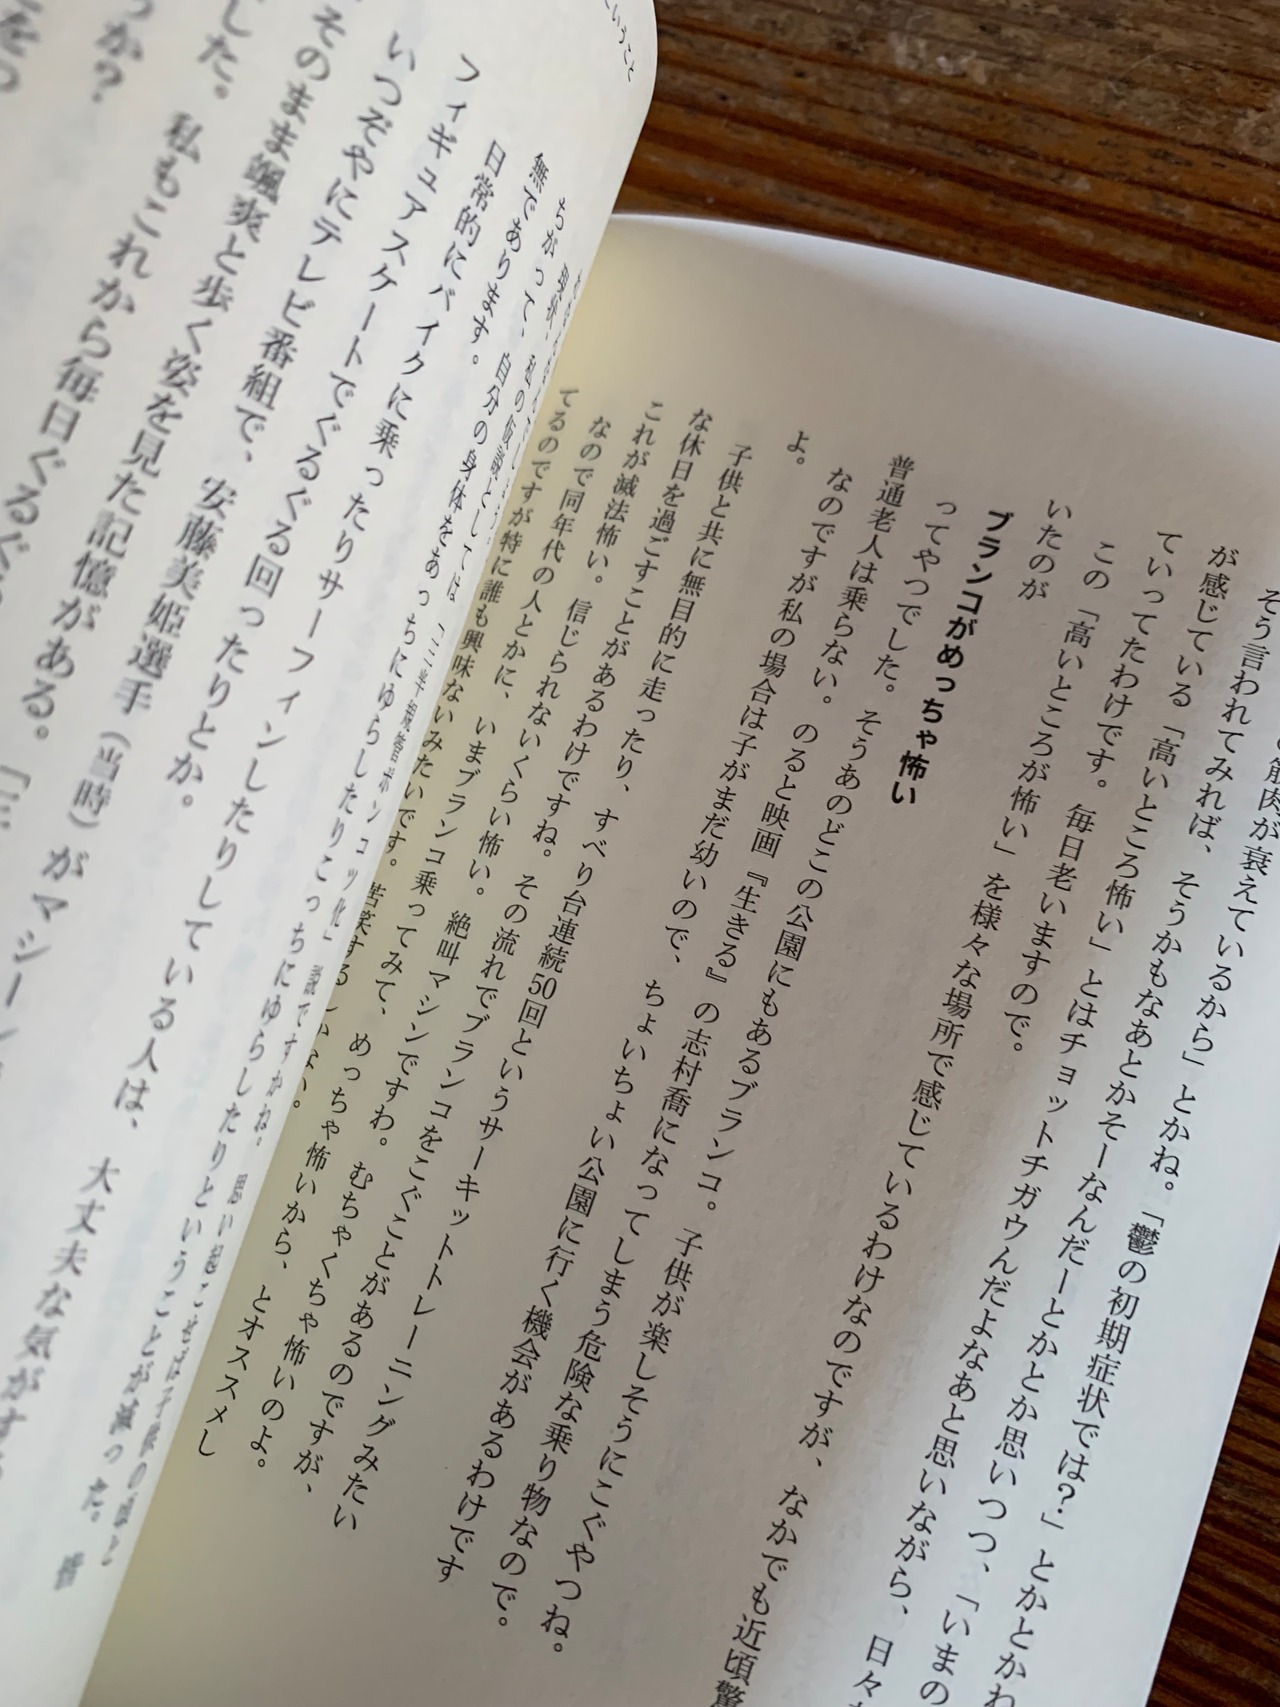 の筋肉が衰えているから」とかね。「鬱の初期症状では?」とかとかわ
そう言われてみれば、そうかもなあとかそーなんだーとかとか思いつつ、「いまの
が感じている「高いところ怖い」とはチョットチガウんだよなあと思いながら、日々
ていってたわけです。毎日老いますので。
この「高いところが怖い」を様々な場所で感じているわけなのですが、なかでも近頃驚
いたのが
ブランコがめっちゃ怖い
ってやつでした。そうあのどこの公園にもあるブランコ。子供が楽しそうにこぐやつね。
普通老人は乗らない。のると映画『生きる』の志村喬になってしまう危険な乗り物なので。
なのですが私の場合は子がまだ幼いので、ちょいちょい公園に行く機会があるわけです
よ。
子供と共に無目的に走ったり、すべり台連続50回というサーキットトレーニングみたい
な休日を過ごすことがあるわけですね。その流れでブランコをこぐことがあるのですが、
これが滅法怖い。信じられないくらい怖い。絶叫マシンですわ。むちゃくちゃ怖いのよ。
なので同年代の人とかに、いまブランコ乗ってみて、めっちゃ怖いから、とオススメし
てるのですが特に誰も興味ないみたいです。苦笑するしかない。
ちがって、私の仮説としては「三半規管ポンコツ化」説ですかね。思い起こせば子供の頃と
無であります。自分の身体をあっちにゆらしたりこっちにゆらしたりということが減った。
日常的にバイクに乗ったりサーフィンしたりしている人は、大丈夫な気がする
フィギュアスケートでぐるぐる回ったりとか。
いつぞやにテレビ番組で、安藤美姫選手(当時)がマシーン
そのまま颯爽と歩く姿を見た記憶がある。「三
した。私もこれから毎日ぐるぐ
うか?
ということ